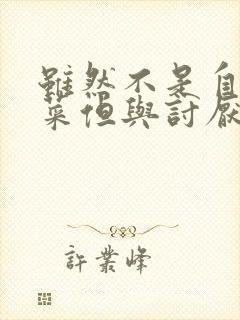 雖然不是自
菜但與討厭
許業峰